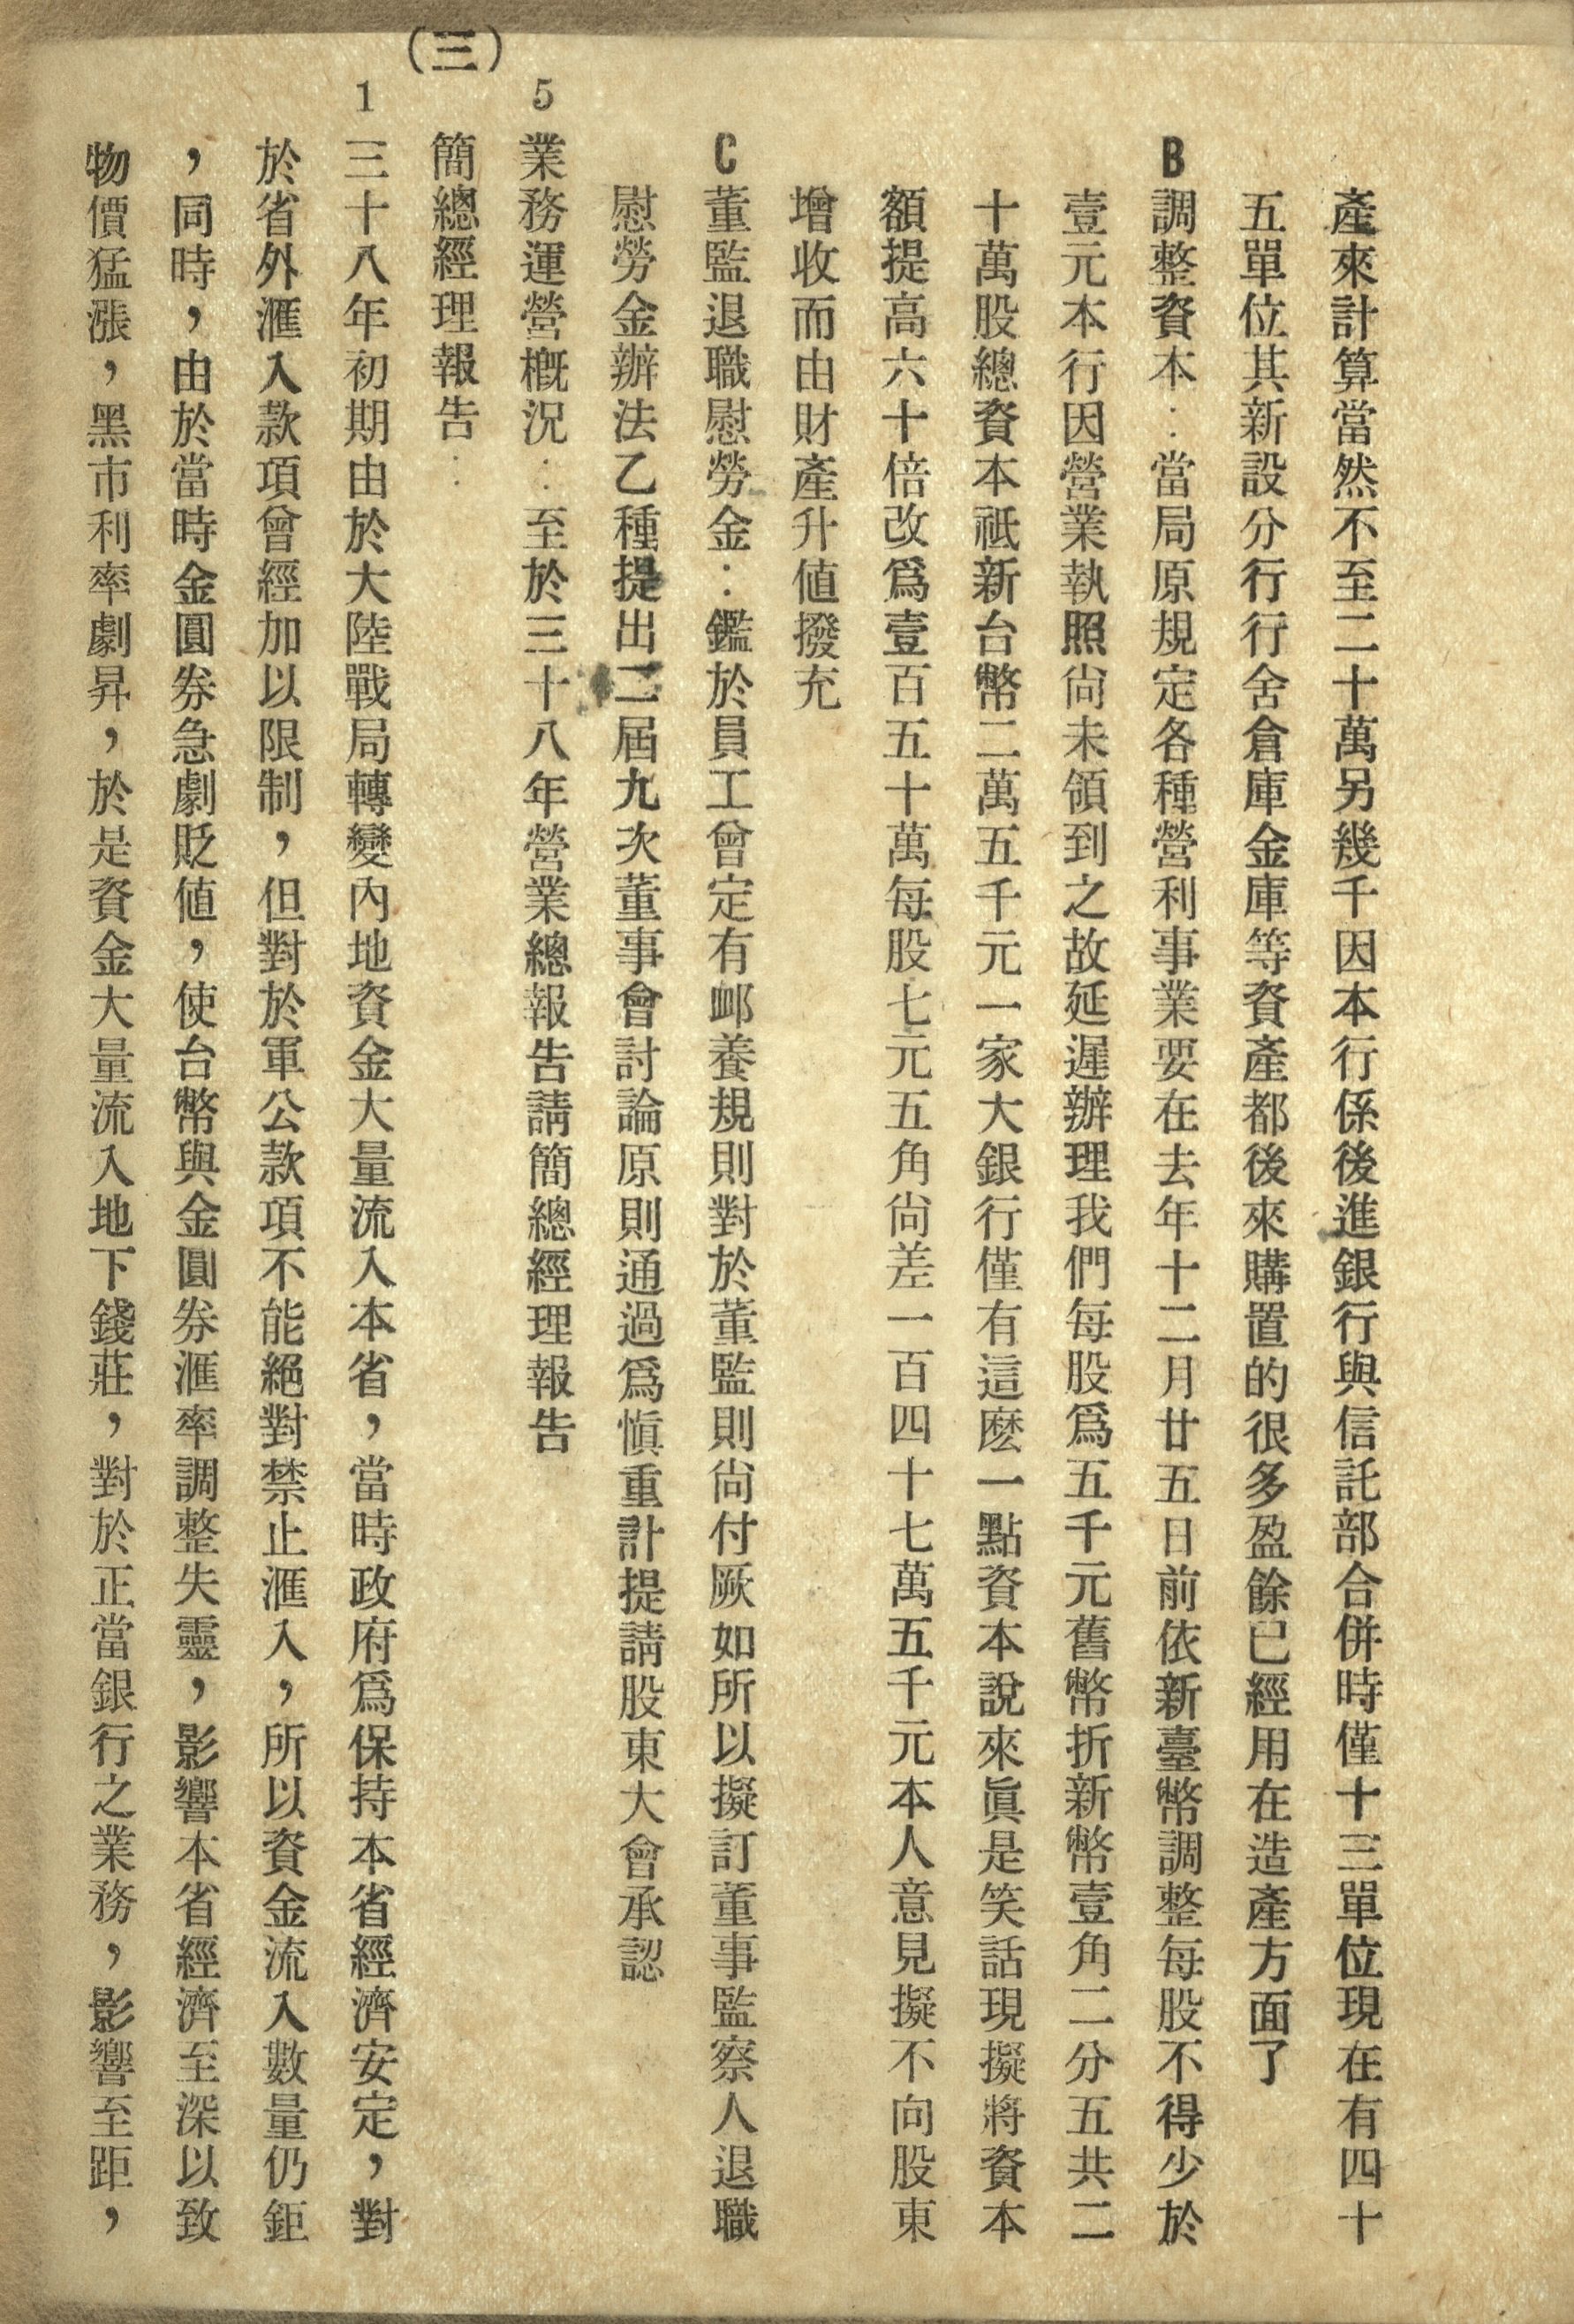 產來計算當然不至二十萬另幾千因本行係後進銀行與信託部合併時僅十三單位現在有四十
五單位其新設分行行舍倉庫金庫等資產都後來購置的很多盈餘已經用在造產方面了
B調整資本：當局原規定各種營利事業要在去年十二月廿五日前依新臺幣調整每股不得少於
壹元本行因營業執照尙未領到之故延遲辦理我們每股爲五千元舊幣折新幣壹角二分五共二
十萬股總資本祇新台幣二萬五千元一家大銀行僅有這麽一點資本說來眞是笑話現擬將資本
額提高六十倍改爲壹百五十萬每股七元五角尙差一百四十七萬五千元本人意見擬不向股東
增收而由財產升値撥充
C董監退職慰勞金：鑑於員工曾定有卹養規則對於董監則尙付厥如所以擬訂董事監察人退職
慰勞金辦法乙種提出二屆九次董事會討論原則通過爲愼重計提請股東大會承認
5業務運營槪況：至於三十八年營業總報告請簡總經理報告
(三)簡總經理報告：
1三十八年初期由於大陸戰局轉變內地資金大量流入本省，當時政府爲保持本省經濟安定，對
於省外滙入款項曾經加以限制，但對於軍公款項不能絕對禁止滙入，所以資金流入數量仍鉅
，同時，由於當時金圓券急劇貶値，使台幣與金圓券滙率調整失靈，影響本省經濟至深以致
物價猛漲，黑市利率劇昇，於是資金大量流入地下錢莊，對於正當銀行之業務，影響至距，